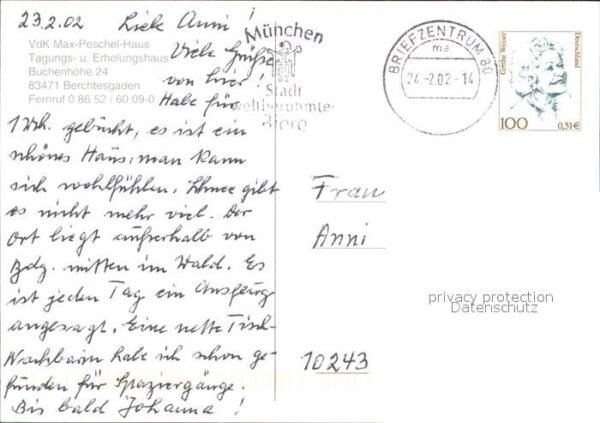 23.2.02 Liebe Anni!
VdK Max-Peschel-Haus
Tagungs- u. Erholungshaus
Buchenhöhe 24
83471 Berchtesgaden
Fernruf 0 86 52 / 60 09-0
Viele Grüße
von hier!
Habe für
1 Wk. gebucht, es ist ein
schönes Haus, man kann
sich wohlfühlen. Schnee gibt
es nicht mehr viel. Der
Ort liegt außerhalb von
Bdg. mitten im Wald. Es
ist jeden Tag ein Ausflug
angesagt. Eine nette Tisch-
Nachbarin habe ich schon ge-
funden für Spaziergänge.
Bis bald Johanna!
München
Stadt
weltberühmter
Biere
BRIEFZENTRUM 80
ma
24.-2.02-14
Grethe Weiser
Deutschland
100 0,51€
Frau
Anni
10243
privacy protection
Datenschutz